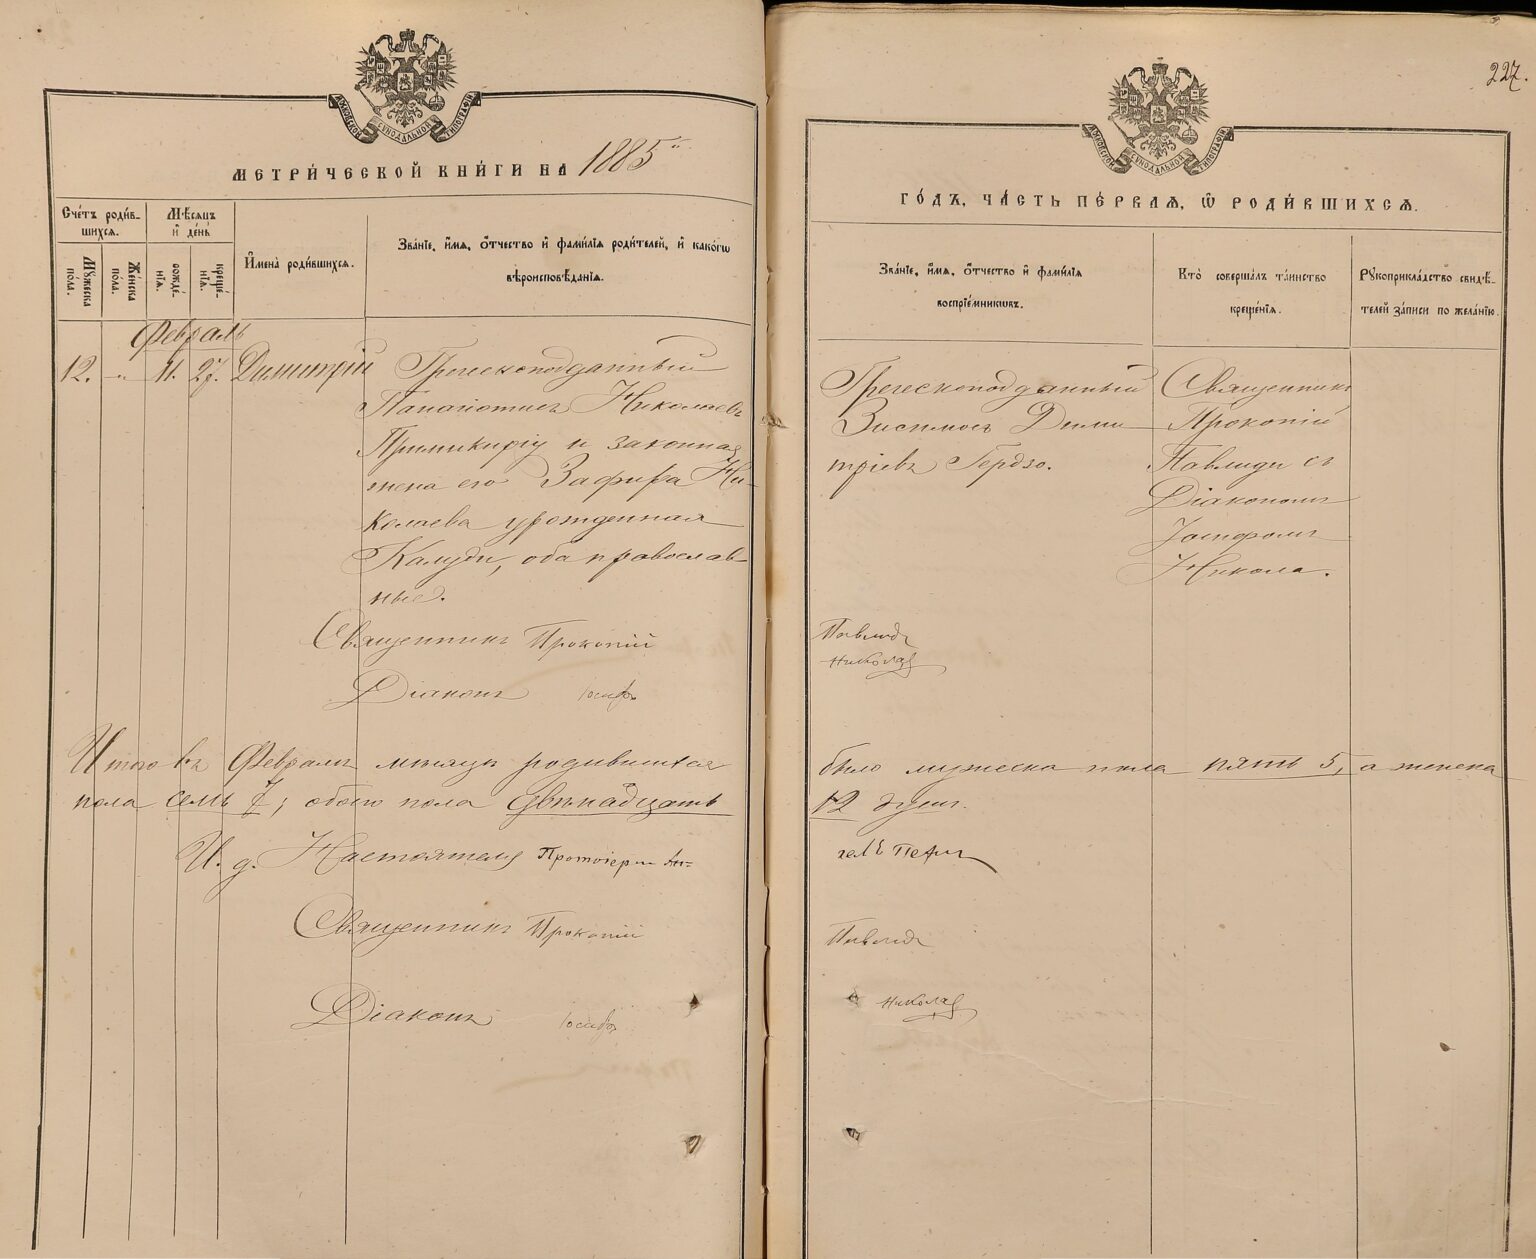 227.
МОСКОВСКОЙ СѴНОДАЛЬНОЙ ТИПОГРАФІИ
МЕТРИ́ЧЕСКОЙ КНИ́ГИ НА 1885й
Сче́тъ роди́в-
шихся.
Мѣ́сяцъ
и҆ де́нь
Му́жеска
по́ла.
Же́нска
по́ла.
рожде́-
нїя.
креще́-
нїя.
И҆мена̀ роди́вшихся.
Зва́нїе, и҆́мя, ѻ҆́тчество и҆ фами́лїя роди́телей, и҆ како́гѡ
вѣроисповѣ́данїя.
Февраль
12. -"- 11. 27. Димитрій
Греческоподданный
Панаіотисъ Николаевъ
Примикирiу и законная
жена его Зафира Ни-
колаева урожденная
Калуди, оба православ-
ные.
Священникъ Прокопій
Діаконъ Іосифъ
Итого въ Февралѣ мѣсяцѣ родившихся
пола семь 7; обоего пола двѣнадцать
И. д. Настоятеля Протоіерей Ан-
Священникъ Прокопій
Діаконъ Іосифъ
МОСКОВСКОЙ СѴНОДАЛЬНОЙ ТИПОГРАФІИ
ГО́ДЪ, ЧА́СТЬ ПЕ́РВАЯ, Ѽ РОДИ́ВШИХСЯ.
Зва́нїе, и҆́мя, ѻ҆́тчество и҆ фами́лїя
воспрїе́мникѡвъ.
Кто̀ соверша́лъ та́инство
креще́нїя.
Рукоприкла́дство свидѣ́-
телей за́писи по жела́нїю.
Греческоподданный
Зисимосъ Дими-
тріевъ Гердзо.
Священникъ
Прокопій
Павлиди съ
Діакономъ
Іосифомъ
Никола.
Павлиди
Николав
было мужеска пола пять 5, а женска
12 душъ.
гелъ Пефи
Павлиди
Николав